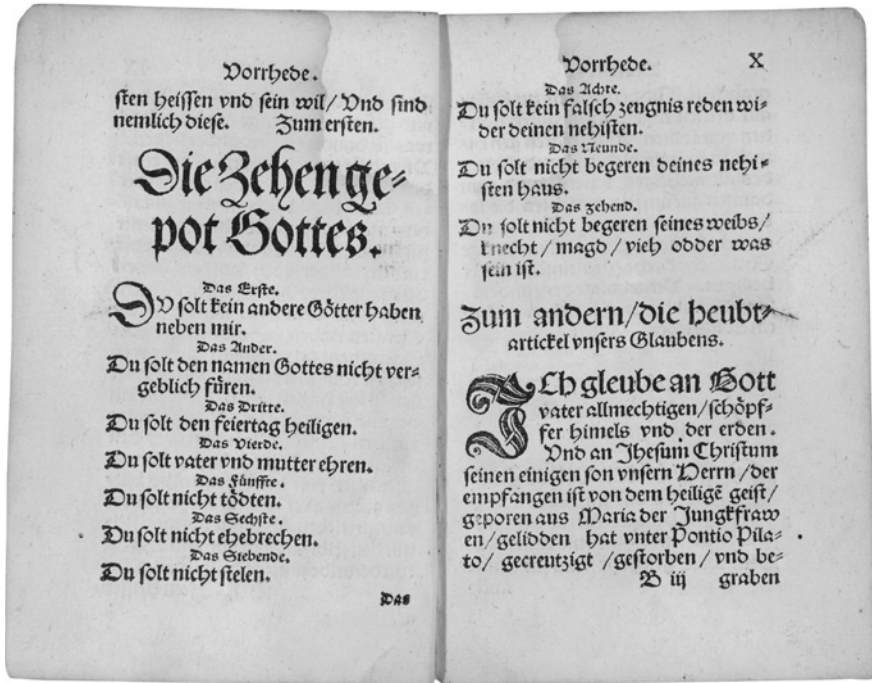 Vorrhede.
sten heissen vnd sein wil/ Vnd sind
nemlich diese. Zum ersten.
Die Zehen ge-
pot Gottes.
Das Erste.
DV solt kein andere Götter haben
neben mir.
Das Ander.
Du solt den namen Gottes nicht ver-
geblich füren.
Das Dritte.
Du solt den feiertag heiligen.
Das Vierde.
Du solt vater vnd mutter ehren.
Das Fünffte.
Du solt nicht tödten.
Das Sechste.
Du solt nicht ehebrechen.
Das Siebende.
Du solt nicht stelen.
Das
Vorrhede. X
Das Achte.
Du solt kein falsch zeugnis reden wi-
der deinen nehisten.
Das Neunde.
Du solt nicht begeren deines nehi-
sten haus.
Das zehend.
Du solt nicht begeren seines weibs/
knecht/ magd/ vieh odder was
sein ist.
Zum andern/die heubt-
artickel vnsers Glaubens.
ICh gleube an Gott
vater allmechtigen/schöpf-
fer himels vnd der erden.
Vnd an Jhesum Christum
seinen einigen son vnsern Herrn/der
empfangen ist von dem heiligẽ geist/
geporen aus Maria der Jungkfraw
en/gelidden hat vnter Pontio Pila-
to/ gecreutzigt /gestorben/ vnd be-
B iij graben